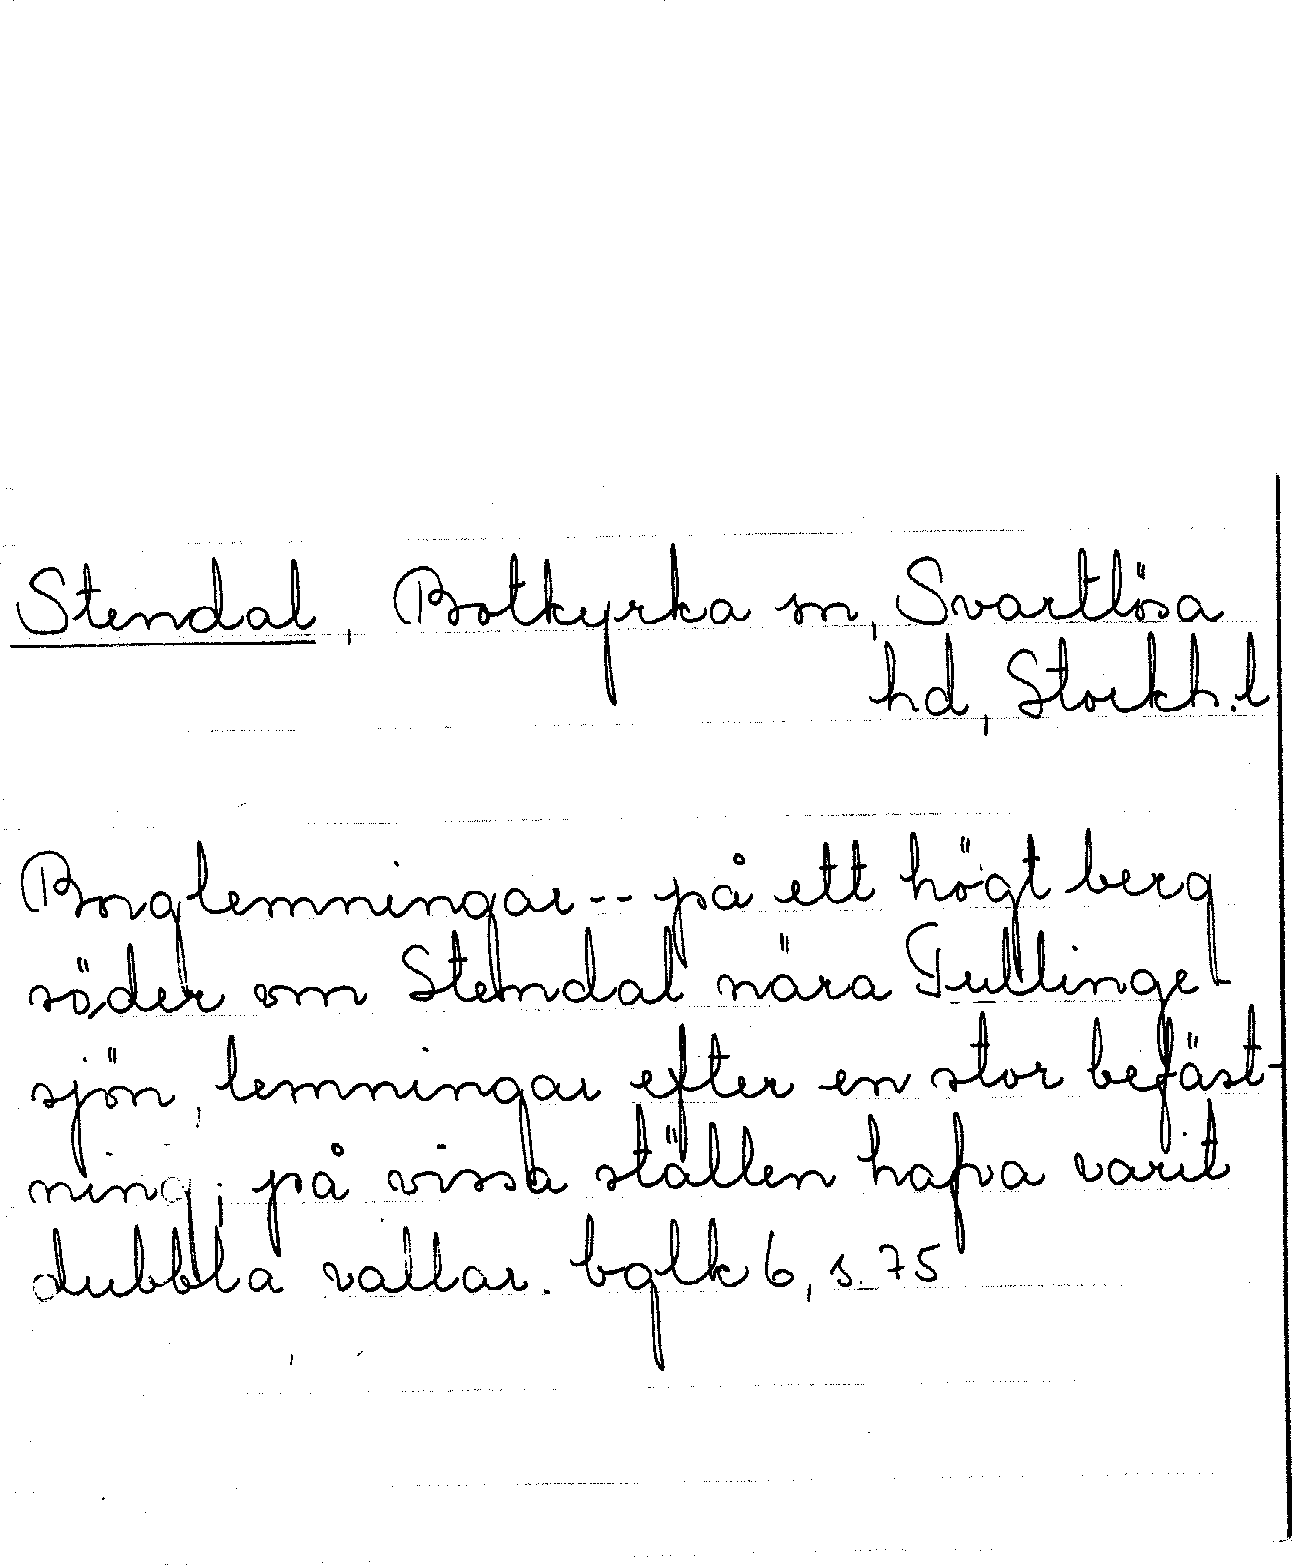 Stendal, Botkyrka sn, Svartlösa
hd, Stockh.l
Borglemningar -- på ett högt berg
söder om Stendal nära Tullinge-
sjön, lemningar efter en stor befäst-
ning; på vissa ställen hafva varit
dubbla vallar. bglk 6, s. 75